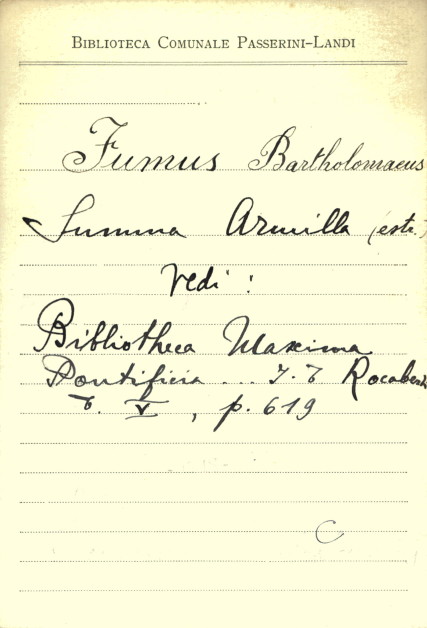 BIBLIOTECA COMUNALE PASSERINI-LANDI
Fumus Bartholomaeus
Summa Armilla (estr.)
Vedi :
Bibliotheca Maxima
Pontificia ... I. T Rocabert
T. V, p. 619
C